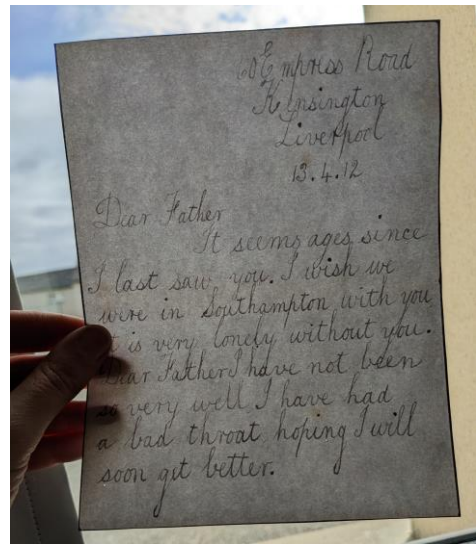 60 Empress Road
Kensington
Liverpool
13.4.12
Dear Father
It seems ages since
I last saw you. I wish we
were in Southampton with you
is very lonely without you.
Dear Father I have not been
so very well I have had
a bad throat hoping I will
soon git better.